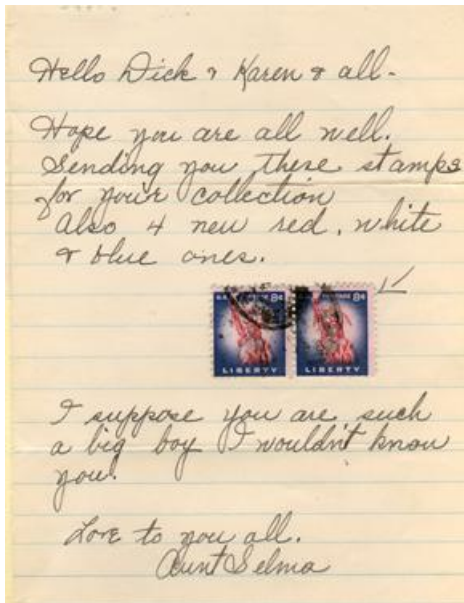 Hello Dick & Karen & all -
Hope you are all well.
Sending you these stamps
for your collection
Also 4 new red, white
& blue ones.
8¢ 8¢
LIBERTY LIBERTY
I suppose you are such
a big boy I wouldn't know
you.
Love to you all.
Aunt Selma